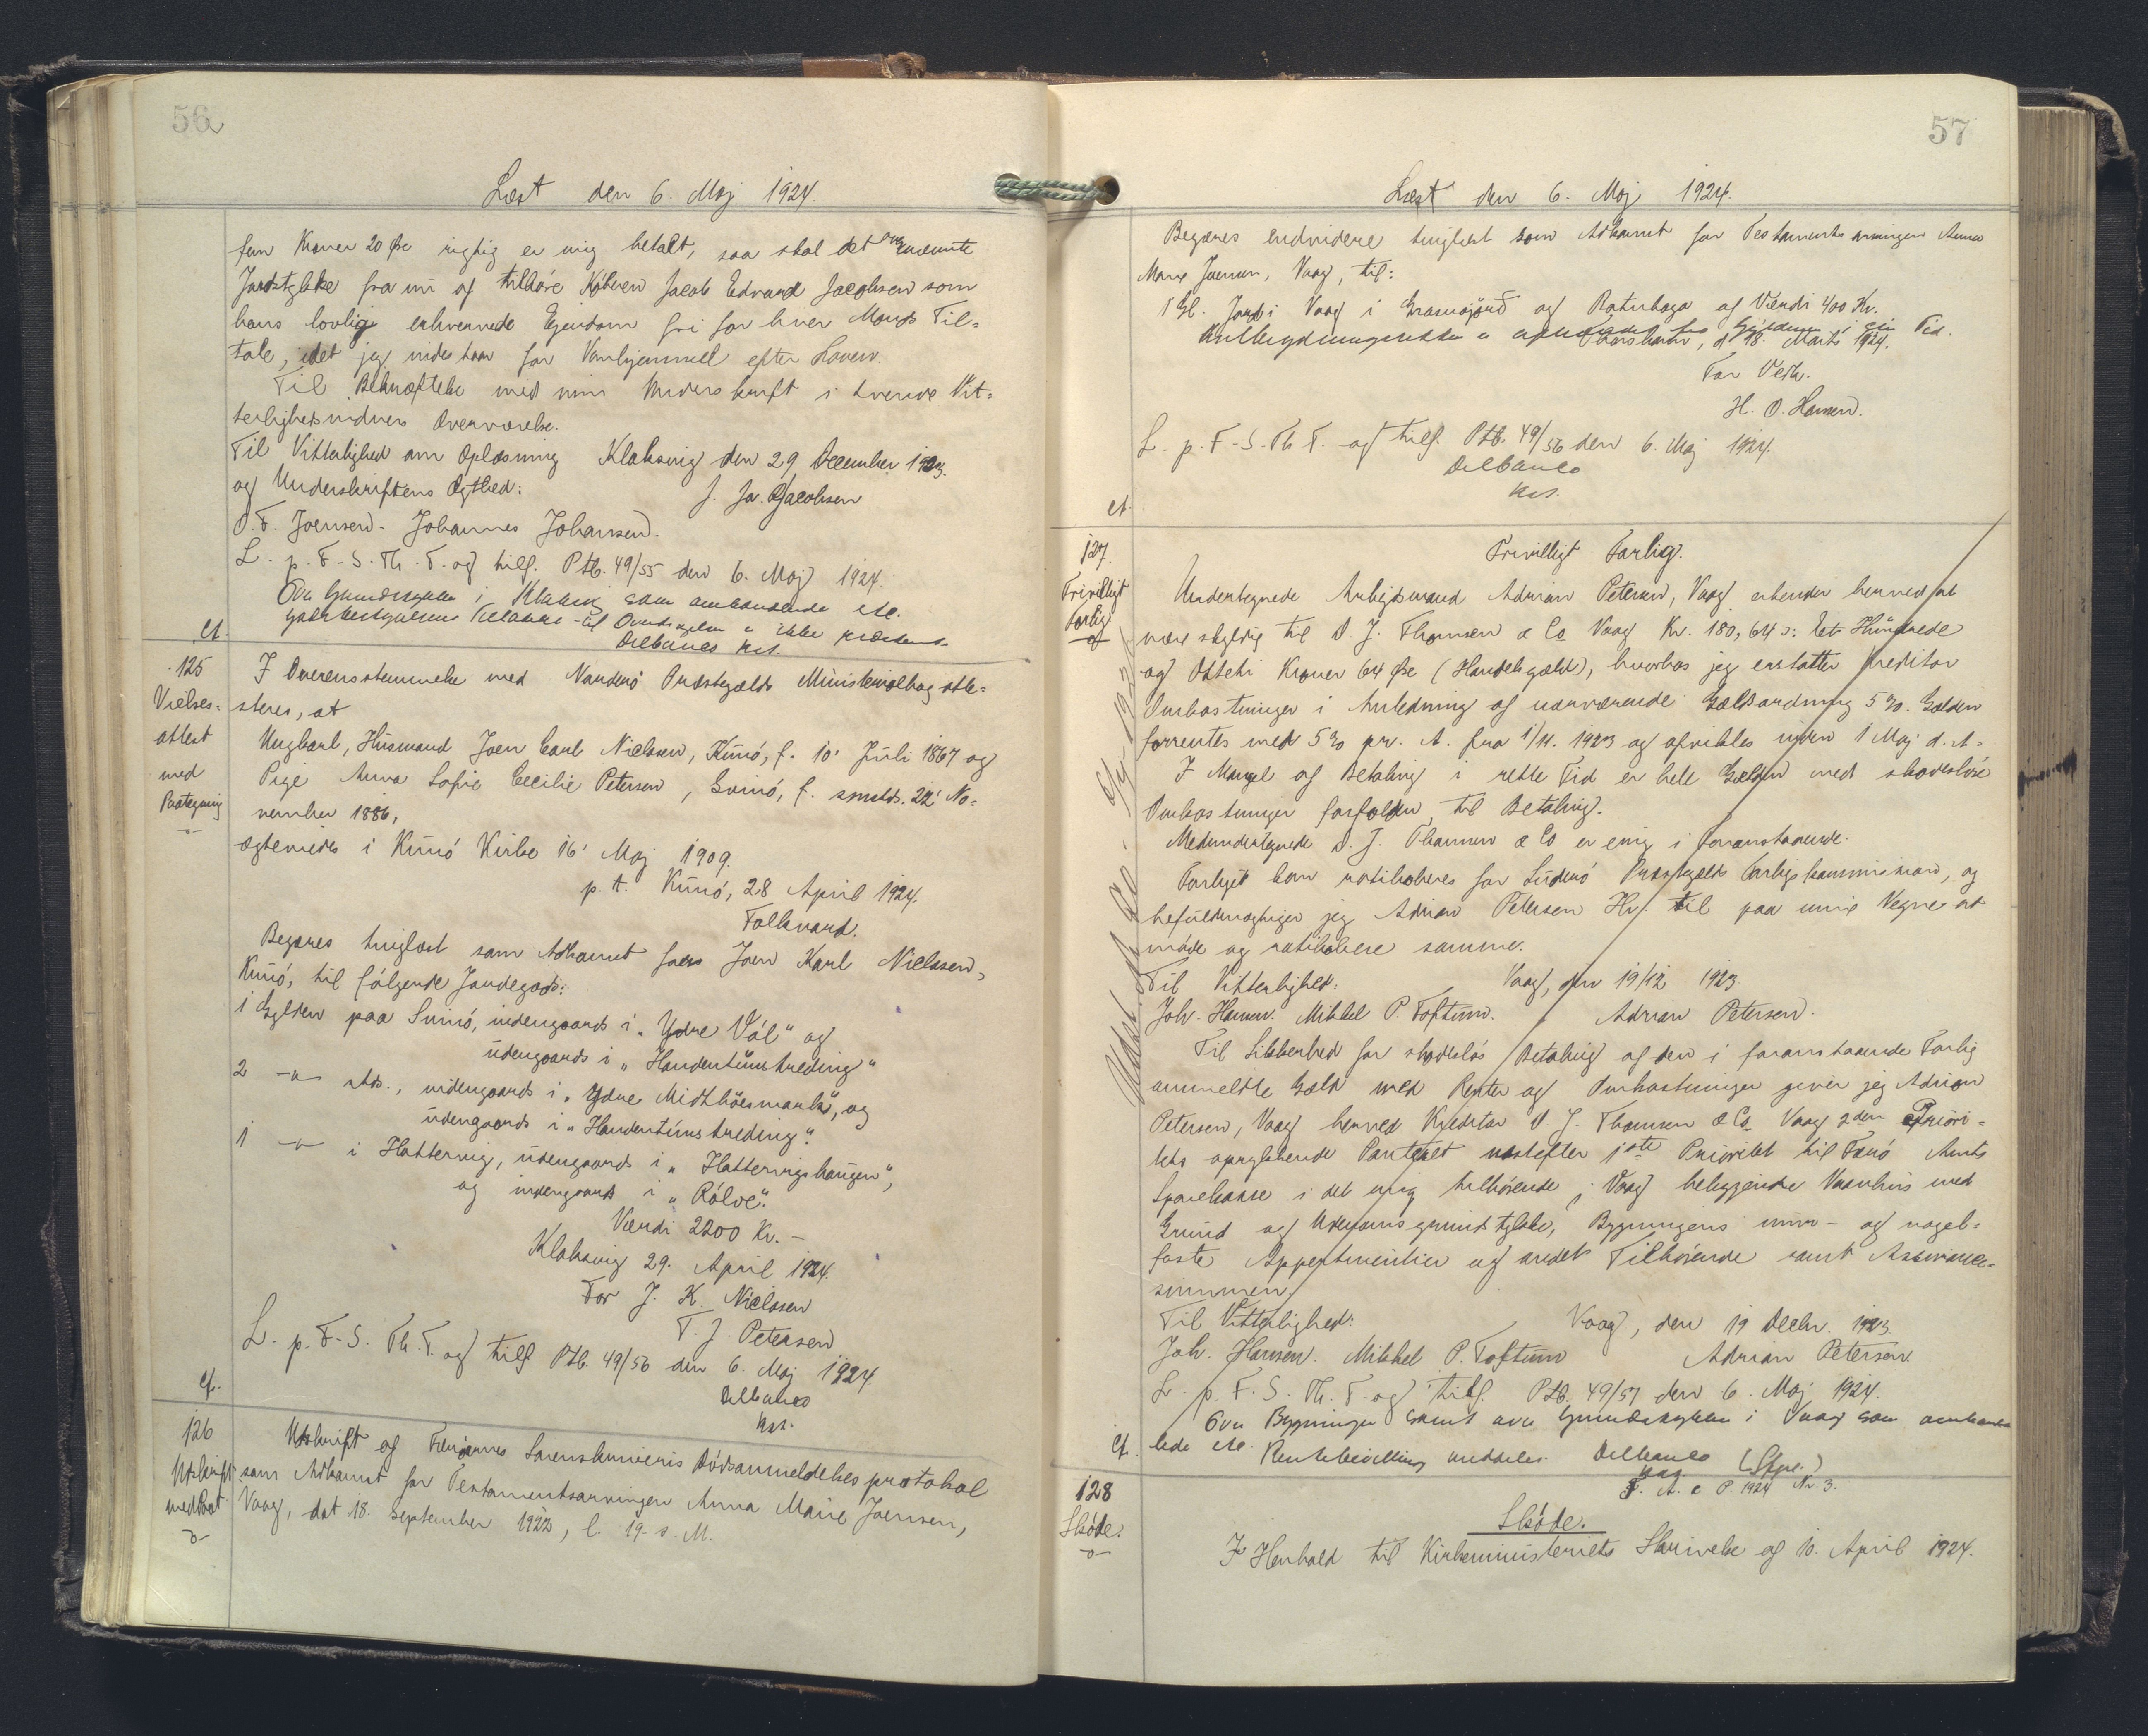 56
Læst den 6. Maj 1924.
fem Kroner 20 Øre rigtig er mig betalt, saa skal det omnævnte
Jordstykke fra nu af tilhøre Køberen Jacob Edvard Jacobsen som
hans lovlig erhvervede Ejendom fri for hver Mands Til-
tale, idet jeg indestaar for Vanhjemmel efter Loven.
Til Bekræftelse med min Underskrift i tvende Vit-
terlighedsvidners Overværelse.
Til Vitterlighed om Oplæsning Klaksvig den 29 December 1923.
og Underskriftens Ægthed: J. Ja. Jacobsen
O. F. Joensen. Johannes Johansen.
L. p. F-S. Th. T. og tilf. Ptb. 49/55 den 6. Maj 1924.
Ove Grundstykke i Klaksvig som ommeldende etc.
til Ovdstykke er ikke
Delbanco kst.
cf.
125
Vielses-
attest
med
Paategning
I Overensstemmelse med Norderø Præstegælds Ministerialbog atte-
steres, at
Ungkarl, Husmand Joen Carl Nielsen, Kunø, f. 10' Juli 1867 og
Pige Anna Sofie Cecilie Petersen, Svinø, f. smstds. 22' No-
vember 1886,
ægteviedes i Kunø Kirke 16' Maj 1909.
p. t. Kunø, 28 April 1924.
Folkvard.
Begæres tinglæst som Adkomst for Joen Karl Nielssen,
Kunø, til følgende Jordegods:
1 Gylden paa Svinø, indengaards i „Ydre Vól" og
udengaards i „Handentúnstreding"
2 -"- stds., indengaards i „Ydre Midthúsmark", og
udengaards i „Handentúnstreding".
1 -"- i Hattervig, udengaards i „Hattervigshaugen",
og indengaards i „Rólve".
Værdi 2200 Kr. -
Klaksvig 29. April 1924.
For J. K. Nielssen
T. J. Petersen
L. p. F-S. Th. T. og tilf. Ptb. 49/56 den 6. Maj 1924.
Delbanco
kst.
cf.
126
Udskrift
med Paat.
Udskrift af Færøernes Sorenskriveris Dødsanmeldelsesprotokol
som Adkomst for Testamentsarvingen Anna Marie Joensen,
Vaag, dat. 18. September 1922, l. 19. s. M.
57
Læst den 6. Maj 1924.
Begæres endvidere tinglæst som Adkomst for Testamentsarvingen Anna
Marie Joensen, Vaag, til:
1 Gl. Jord i Vaag i Grasmøjørd og Raturhaga af Værdi 400 Kr.
Thorshavn, d. 18. Marts 1924.
For Vedk.
H. O. Hansen.
L. p. F-S. Th. T. og tilf. Ptb. 49/56 den 6. Maj 1924.
Delbanco
kst.
cf.
127.
Frivilligt
Forlig
Frivilligt Forlig.
Undertegnede Arbejdsmand Adrian Petersen, Vaag erkender herved at
være skyldig til D. J. Thomsen & Co Vaag Kr. 180,64 ɔ: Eet Hundrede
og Otteti Kroner 64 Øre (Handelsgæld), hvorhos jeg erstatter Kreditor
Omkostninger i Anledning af nærværende Gældsordning 5 %. Gælden
forrentes med 5 % pr. A. fra 1/11. 1923 og afvikles inden 1 Maj d. A.
I Mangel af Betaling i rette Tid er hele Gælden med skadesløse
Omkostninger forfalden til Betaling.
Medundertegnede D. J. Thomsen & Co er enig i foranstaaende.
Forliget kan ratihaberes for Suderø Præstegælds Forligskommission, og
befuldmægtiger jeg Adrian Petersen Hr. til paa mine Vegne at
møde og ratihabere samme.
Til Vitterlighed: Vaag, den 19/12 1923.
Joh. Hansen. Mikkel P. Toftum. Adrian Petersen.
Til Sikkerhed for skadesløs Betaling af den i foranstaaende Forlig
ommeldte Gæld med Renter og Omkostninger giver jeg Adrian
Petersen, Vaag herved Kreditor D. J. Thomsen & Co. Vaag 2den Priori-
tets oprykkende Panteret næstefter 1ste Prioritet til Færø Amts
Sparekasse i det mig tilhørende i Vaag beliggende Vaanhus med
Grund og Udenomsgrundstykke, Bygningens mur- og nagel-
faste Appertinentier og andet Tilhørende samt Assurance-
summen.
Til Vitterlighed: Vaag, den 19 Decbr. 1923.
Joh. Hansen. Mikkel P. Toftum Adrian Petersen.
L. p. F. S. Th. T. og tilf. Ptb. 49/57 den 6. Maj 1924.
Ove Bygninger samt ove Grundstykke i Vaag som
etc. Rentebevilling meddeles. Delbanco (Stpr.)
kst.
F. A. c P. 1924 Nr. 3.
cf.
128
Skøde.
Skøde.
I Henhold til Kirkeministeriets Skrivelse af 10. April 1924.